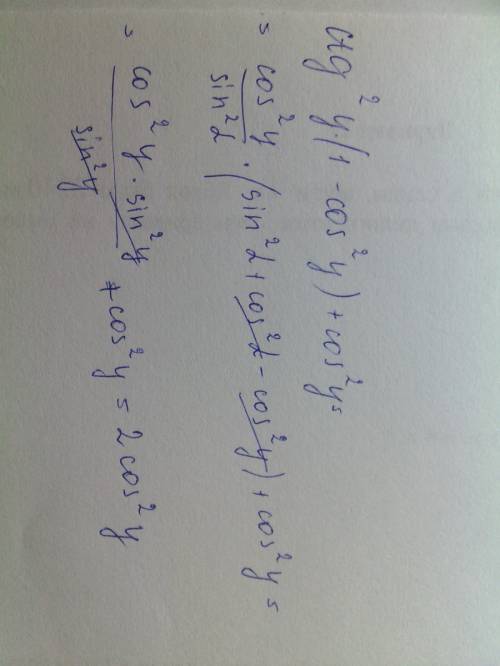 ctg²y(1-cos²y)+cos²y=
= cos²y/sin²α · (sin²α+cos²α-cos²y)+cos²y=
= cos²y·sin²y/sin²y +cos²y=2cos²y